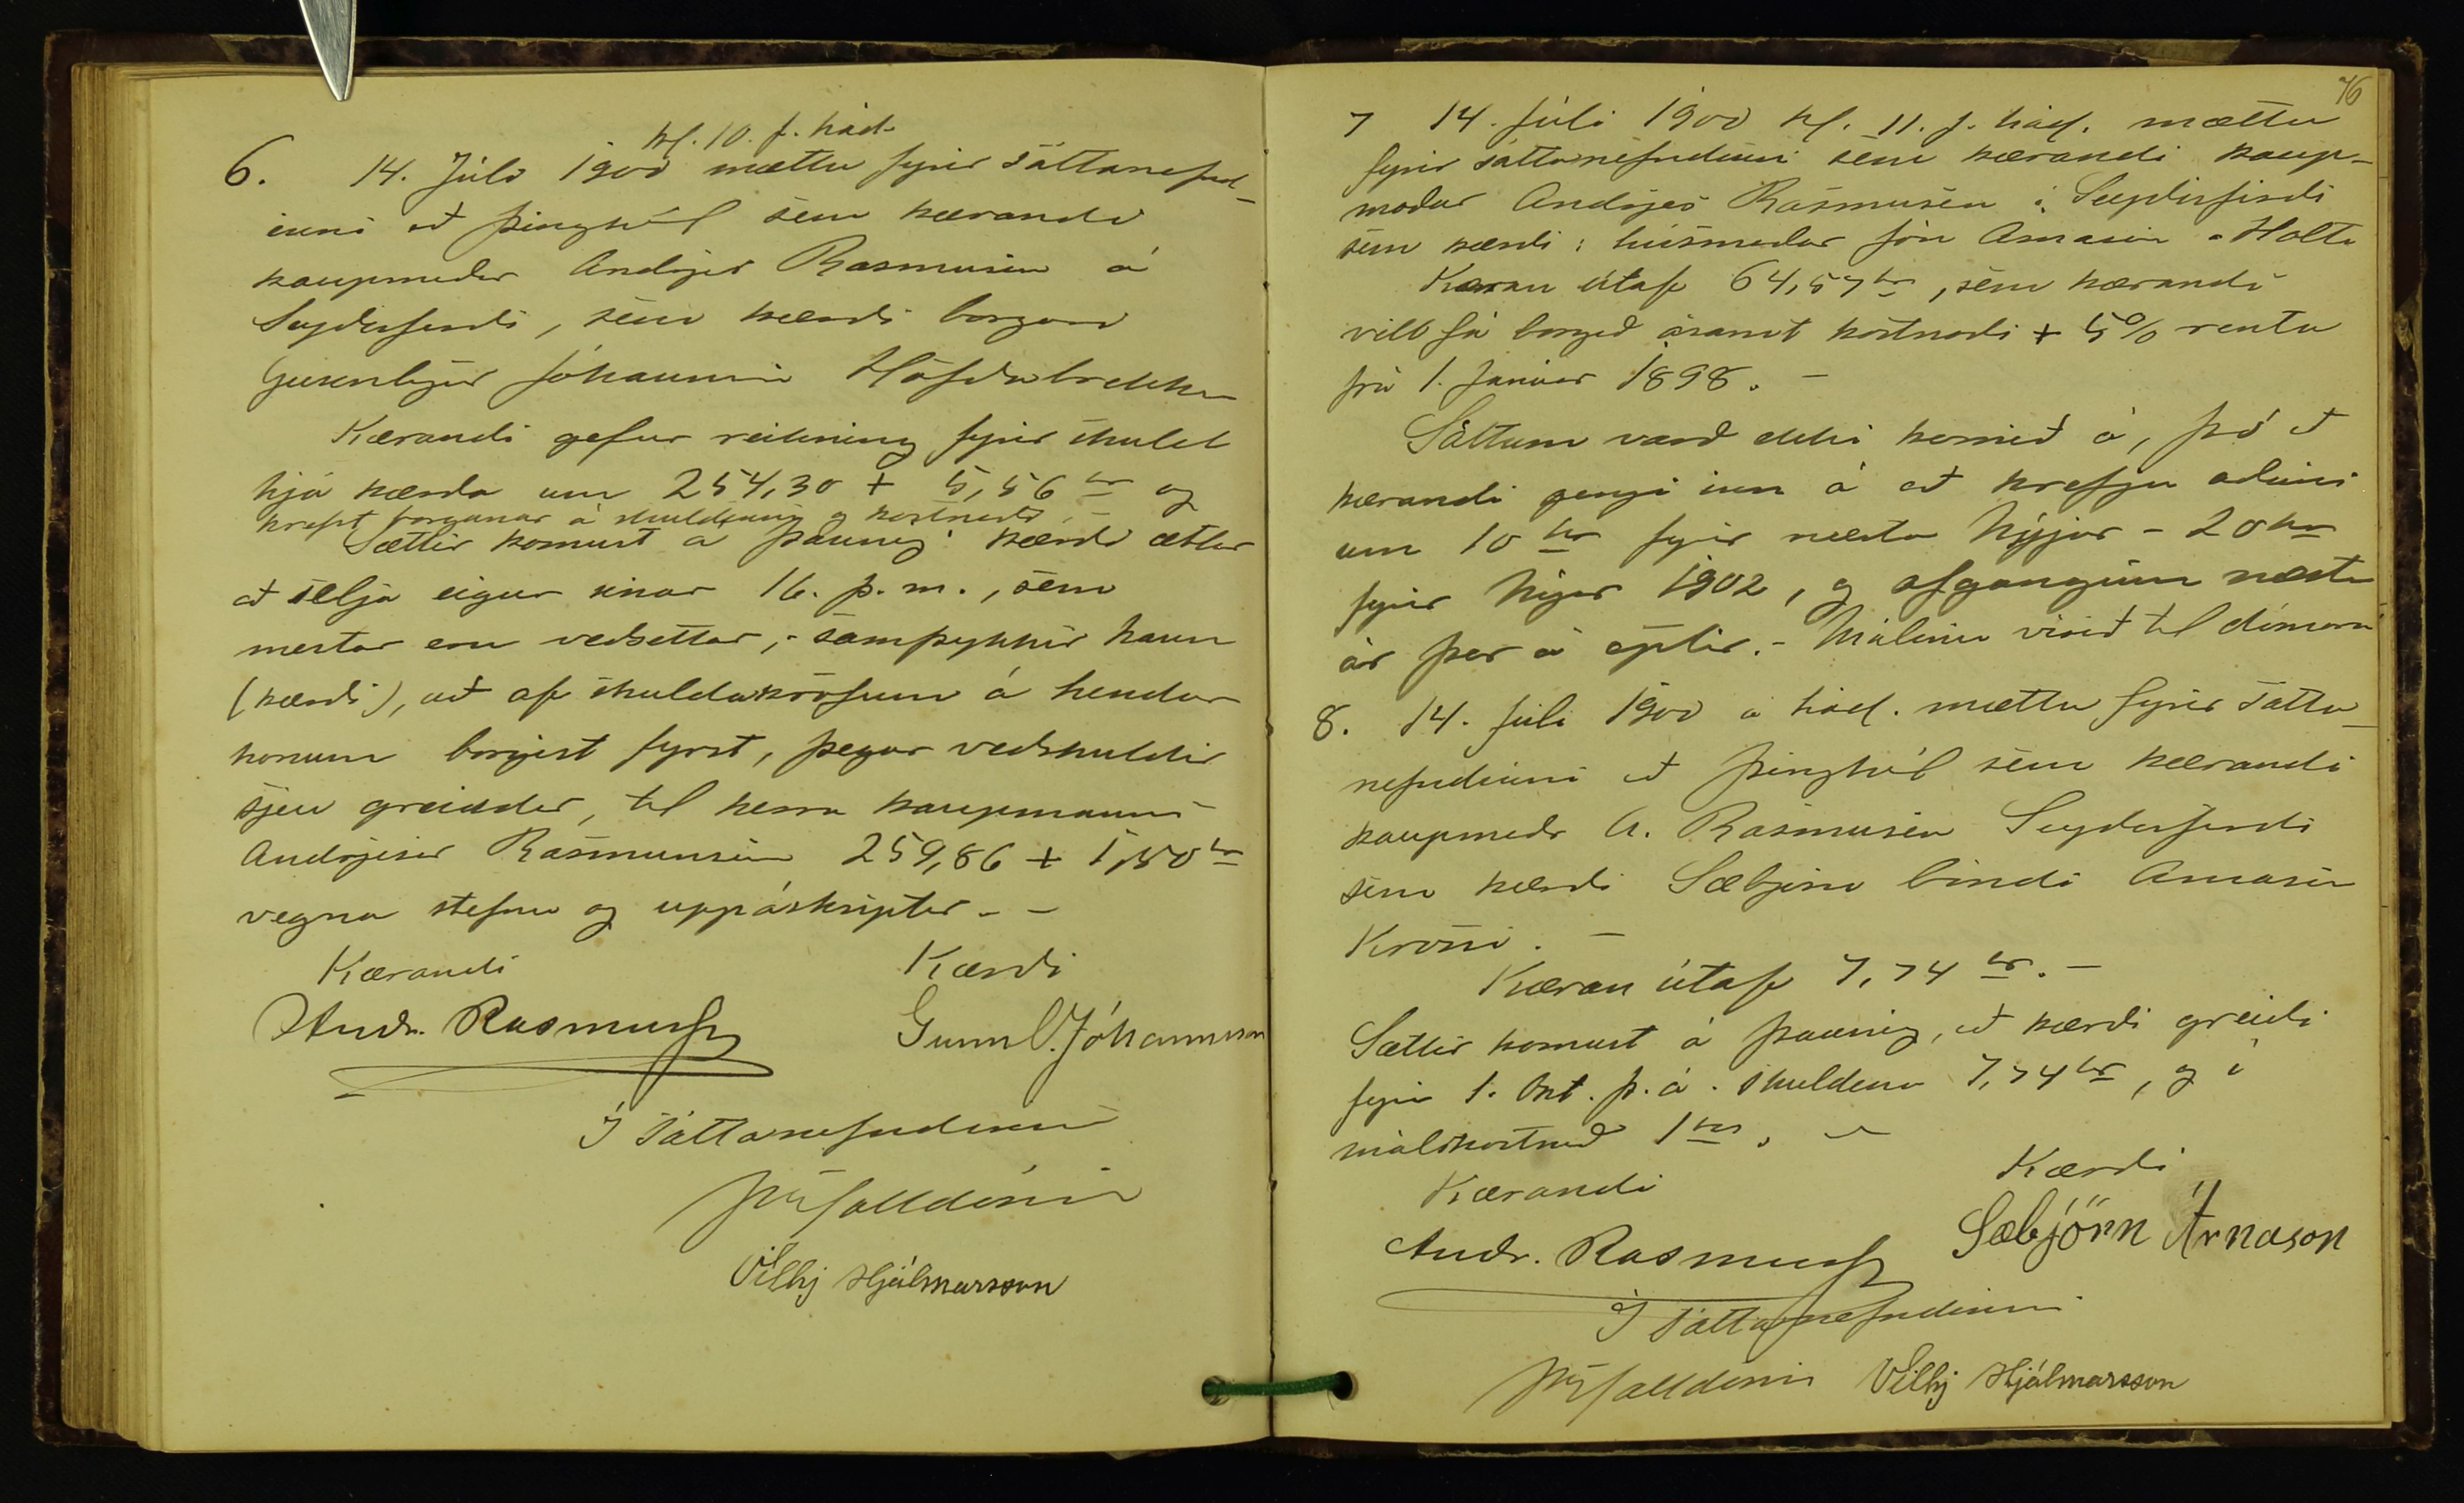 kl. 10. f. hád.
6. 14. Júlí 1900 mættu fyrir sáttanefnd-
inni að Þinghól sem kærandi
kaupmaður Andrjes Rasmusen á
Seyðisfirði, sem kærði borgari
Gunnlögur Jóhannsson Höfðabrekku
Kærandi gefur reikning fyrir skuld
hjá kærða um 254,30 + 5,56 kr og
krefst borgunar á skuldinni og kostnaði. -
Sættir komust á þannig: kærði ætlar
að selja eigur sínar 16. þ. m., sem
mestar eru veðsettar, - samþykkir hann
(kærði), að af skuldakröfum á hendur
honum borgist fyrst, þegar veðskuldir
sjeu greiddar, til herra kaupmanns
Andrjesar Rasmunsen 259,86 + 1,50 kr
vegna stefnu og uppáskriptar - -
Kærandi Kærði
Andr. Rasmussen Gunnl. Jóhannsson
Í sáttanefndinni
Vilhj Hjálmarsson
76
7 14. Júlí 1900 kl. 11. f. hád. mættu
fyrir sáttanefndinni sem kærandi kaup-
maður Andrjes Rasmusen á Seyðisfirði
sem kærði: húsmaður Jón Arnason á Holti
Kæran útaf 64,57 kr, sem kærandi
vill fá borgað ásamt kostnaði + 5% rentu
frá 1. Janúar 1898. -
Sáttum varð ekki komið á, þó að
kærandi gengi inn á að krefja aðeins
um 10 kr fyrir næsta Nýjár - 20 kr
fyrir Nýjár 1902, og afganginn næsta
ár þar á eptir. - Málinu vísað til dómara
8. 14. Júlí 1900 á hád. mættu fyrir sátta-
nefndinni að Þinghól sem kærandi
kaupmaðr A. Rasmusen Seyðisfirði
sem kærði Sæbjörn bóndi Arnason
Krossi. -
Kæran útaf 7,74 kr. -
Sættir komust á þannig, að kærði greiði
fyrir 1. Okt. þ. á. skuldina 7,74 kr, og í
málskostnað 1 kr. -
Kærandi Kærði
Andr. Rasmussen Sæbjörn Árnason
Í sáttanefndinni
Vilhj Hjálmarsson